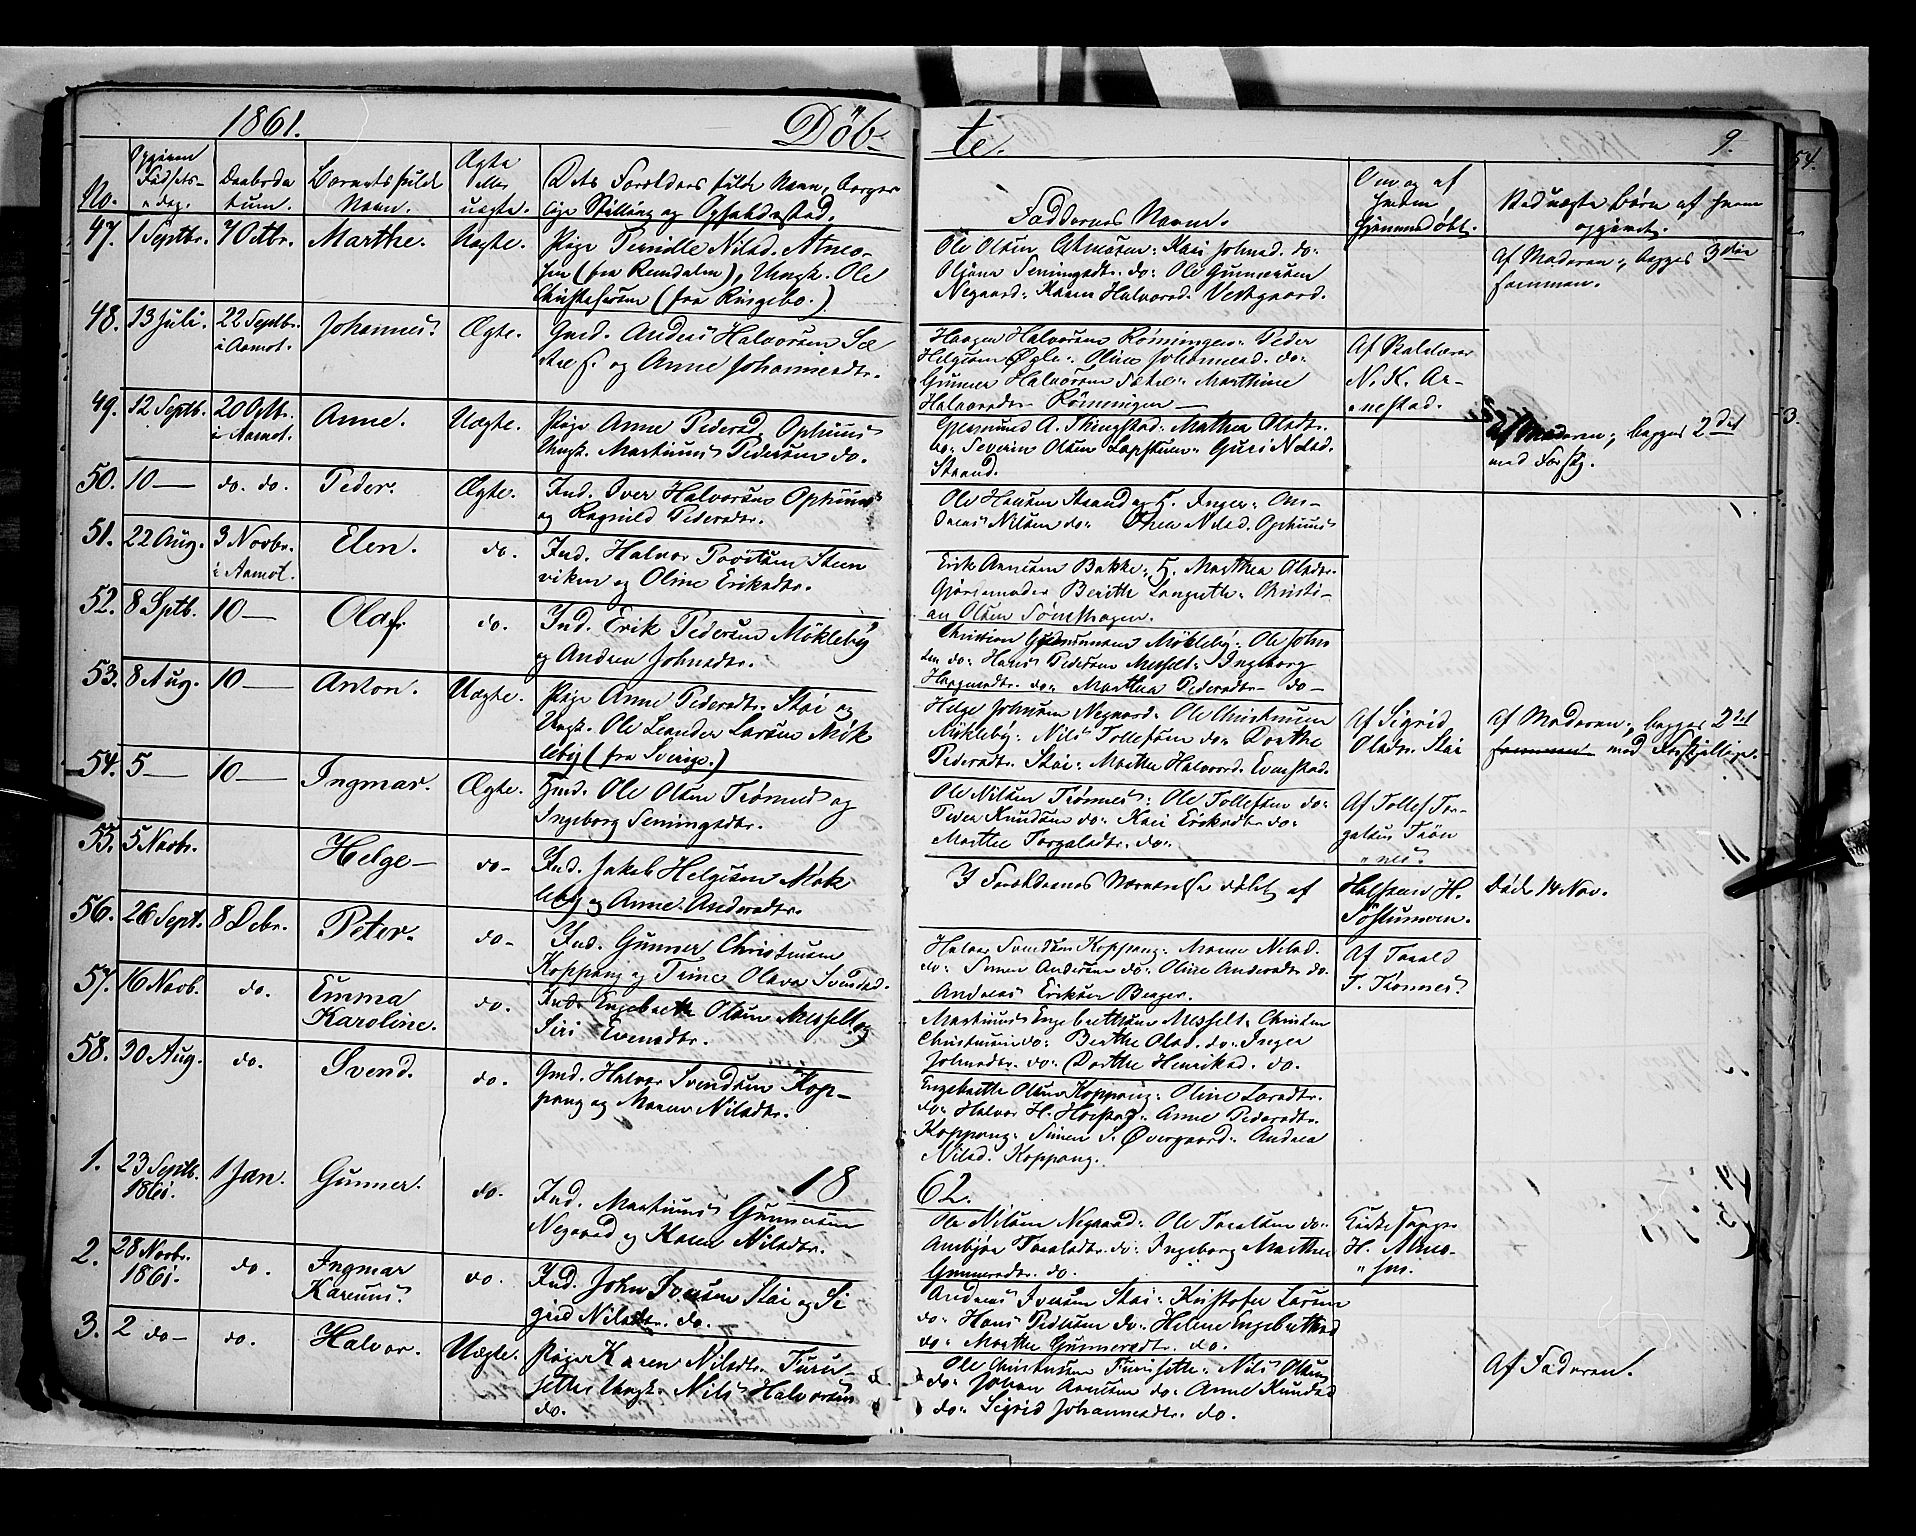 1861.
Döb-
te.
9.
54.
No.
Opgiven Fødsels-dag.
Daabsda tum.
Barnets fulde Navn.
Ægte eller uægte.
Dets Forældres fulde Navn, borger lige Stilling og Opholdssted.
Faddernes Navne.
Om og af hvem hjemmedøbt.
Ved uægte Børn af hvem opgivet.
47.
1 Septbr.
7 Octbr.
Marthe.
Uægte.
Pige Pernille Nilsd. Atneo-
sen (fra Rendalen), Ungk. Ole
Christophersen (fra Ringebo.)
Ole Olsen Atneosen: Kari Johnsd. do:
Oljana Semingsdtr. do: Ole Gunnersen
Negaard: Karen Halvorsd. Vestgaard.
Af Moderen; begges 3die
Leiermaal.
48.
13 Juli.
22 Septbr.
i Aamot.
Johannes.
Ægte.
Gmd. Anders Halvorsen Sæ
tre og Anne Johannesdtr.
Haagen Halvorsen Rønningen: Peder
Helgesen Øgle: Oline Johannesd. do:
Gunner Halvorsen Sætre: Marthine
Halvorsdtr. Rønningen —
Af Skolelærer
N. K. Ar-
nestad.
49.
12 Septb.
20 Octbr.
i Aamot.
Anne.
Uægte.
Pige Anne Pedersd. Ophuus
Ungk. Martinus Pedersen do.
A. Stengstad: Mathea Olsdtr.
do: Severin Olsen: Guri Nilsd.
Strand.
Af Moderen; begges 2det
med Forskj.
50.
10 —
do. do.
Peder.
Ægte.
Ind. Iver Halvorsen Ophuus
og Ragnild Pedersdtr.
Ole Hansen Strand og H. Inger: An-
dreas Nilsen do: Thea Nilsd. Ophuus
51.
22 Aug.
3 Novbr.
i Aamot.
Elen.
do.
Ind. Halvor Steen
viken og Oline Eriksdtr.
Erik Arnesen Bakke: H. Marthea Olsdtr.
Gjordemoder Berithe Langseth: Christi-
an Olsen
52.
8 Sptb.
10 —
Olaf.
do.
Ind. Erik Pedersen Mökleby
og Andrea Johnsdtr.
Christian Gudmunsen Mökleby: Ole John
sen do: Hans Pedersen Messelt: Ingeborg
Haagensdtr. do: Marthea Pedersdtr. do —
53.
8 Aug.
10 —
Anton.
Uægte.
Pige Anne Pedersdtr. Stai og
Ungk. Ole Leander Larsen Mök
leby (fra Sverige.)
Helge Johnsen Negaard: Ole Christensen
Mökleby: Nils Tollefsen do: Dorthe
Pedersdtr. Stai: Marthe Halvorsd. Evenstad.
Af Sigrid
Olsdtr. Stai
Af Moderen; begges 2det
med Forskjellige.
54.
5 —
10 —
Ingmar.
Ægte.
Hmd. Ole Olsen Trønnes og
Ingeborg Semingsdtr.
Ole Nilsen Trønnes: Ole Tollefsen do:
Peder Knudsen do: Kari Eriksdtr. do:
Marthe Torgalsdtr. do.
Af Tollef Tor-
galsen Trön
nes.
55.
5 Novbr.
Helge —
do —
Ind. Jakob Helgesen Mök
leby og Anne Andersdtr.
I Forældrenes Nærværelse döbt af
Halsteen H.
Död 14 Nov.
56.
26 Sept.
8 Debr.
Peter.
do —
Ind. Gunner Christensen
Koppang og Trine Olava Svendsd.
Halvor Svendsen Koppang: Maren Nilsd.
do: Simen Andersen do: Oline Andersdtr. do.
Andreas Eriksen Berger.
Af Torald
T. Trønnes.
57.
16 Novb.
do.
Emma
Karoline.
do.
Ind. Engebreth Olsen Messelt og
Siri Evensdtr.
Martinus Engebrethsen Messelt: Christen
Christensen do: Berthe Olsd. do: Inger
Johnsdtr. do: Dorthe Henriksd. do.
58.
30 Aug.
do.
Svend.
do.
Gmd. Halvor Svendsen Kop-
pang og Maren Nilsdtr.
Engebreth Olsen Koppang: Oline Larsdtr.
do: Halvor H. Horstad: Anne Pedersdtr.
Koppang: Simen S. Övergaard: Andrea
Nilsd. Koppang.
1862.
1.
23 Septb.
1861.
1 Jan.
Gunner.
do.
Ind. Martinus Gunnersen
Negaard og Karen Nilsdtr.
Ole Nilsen Negaard: Ole Toralsen do:
Ambjør Toralsdtr. do: Ingeborg Marthea
Gunnersdtr. do.
Kirkesanger
H. Atneo-
sen.
2.
28 Novbr.
1861.
do.
Ingmar
Karinus.
do.
Ind. John Iversen Stai og Si
grid Nilsdtr. do.
Andreas Iversen Stai: Kristofer Larsen
do: Hans Pedersen do: Helene Engebrethsd.
do: Marthe Gunnersdtr. do.
3.
2 do —
do.
Halvor.
Uægte.
Pige Karen Nilsdtr. Furu-
sethe: Ungk. Nils Halvorsen
do.
Ole Christensen Furusethe: Nils Olsen
do: Johan Arnesen do: Anne Knudsd.
do: Sigrid Johannesdtr. do.
Af Faderen.